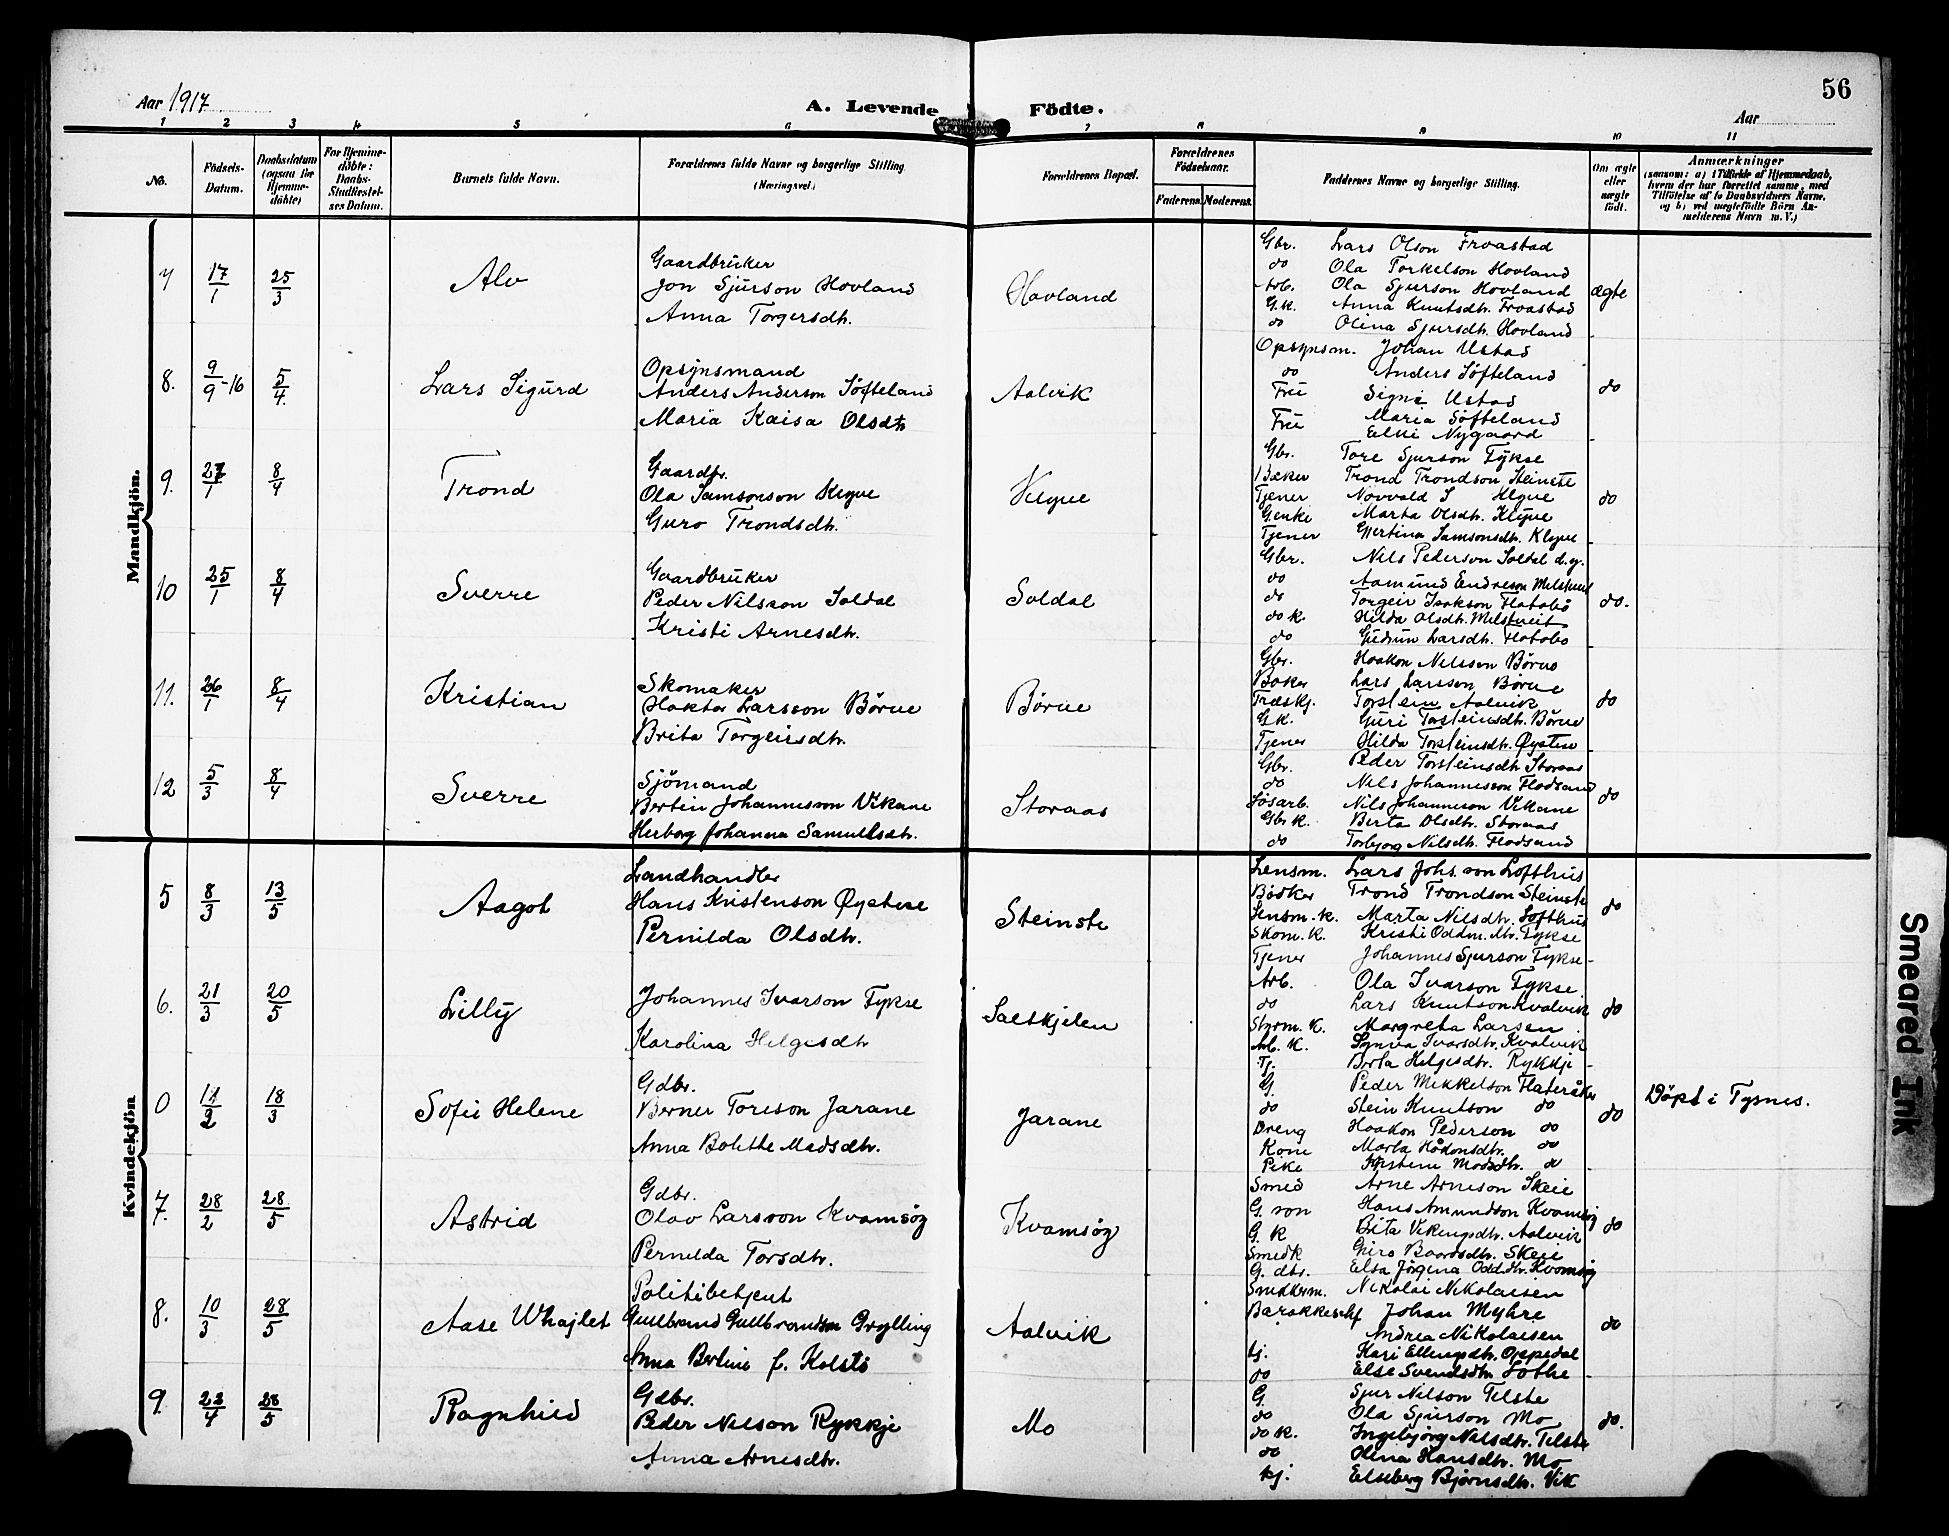 56
Aar 1917
A. Levende Födte.
Aar
1 2 3 4 5 6 7 8 9 10 11
No.
Födsels-Datum.
Daabsdatum (ogsaa for Hjemme-döbte)
For Hjemme-döbte: Daabs-Stadfæstel-ses Datum.
Barnets fulde Navn.
Forældrenes fulde Navne og borgerlige Stilling (Næringsvei.)
Forældrenes Bopæl.
Forældrenes Födselsaar.
Faderens. Moderens.
Faddernes Navne og borgerlige Stilling.
Om ægte eller uægte födt.
Anmærkninger
(saasom: a) i Tilfælde af Hjemmedaab,
hvem der har forrettet samme, med
Tilföielse af to Daabsvidners Navne,
og b) ved uægtefödte Börn An-
melderens Navn m. V.)
Mandkjön.
7 17/1 25/3 Alv
Gaardbruker
Jon Sjurson Hovland
Anna Torgersdtr.
Hovland
Gbr. Lars Olson Froastad
do Ola Torkelson Hovland
Arb. Ola Sjurson Hovland
G.k. Anna Knutsdtr. Froastad
do Olina Sjursdtr. Hovland
ægte
8. 9/9-16 5/4. Lars Sigurd
Opsynsmand
Anders Anderson Söfteland
Maria Kaisa Olsdtr
Aalvik
Opsynsm. Johan Ustad
do Anders Söfteland
Frü Signe Ustad
Frü Maria Söfteland
Elni Nygaard
do
9. 27/1 8/4 Trond
Gaardbr.
Ola Samsonson Klyve
Guro Trondsdtr.
Klyve
Gbr. Tore Sjurson Fykse
Bæker Trond Trondson Steinstø
Tjener Norvald S Klyve
G.enke Marta Olsdtr. Klyve
Tjener Gjertina Samsonsdtr. Klyve
do
10 25/1 8/4 Sverre
Gaardbrüker
Peder Nilsson Soldal
Kristi Arnesdtr.
Soldal
Gbr. Nils Pederson Soldal d.y.
do Aamund Endreson Milstveit
do Torgeir Isakson Flotabö
do k. Hilda Olsdtr. Milstveit
do Gudrun Larsdtr. Flotabö
do.
11. 26/1 8/4 Kristian
Skomaker
Haktor Larsson Börve
Brita Torgeirsdtr.
Börve
Gbr. Haakon Nilsson Börve
Baker Lars Larsson Börve
Træskj. Torstein Aalvik
G.k. Guri Torsteinsdtr. Börve
Tjener Hilda Torsteinsdtr. Øystese
do
12 5/3 8/4 Sverre
Sjömand
Bertin Johannesson Vikane
Herborg Johanna Samuelsdtr.
Storaas
Gbr. Peder Torsteinsdtr. Storaas
do Nils Johannesson Flodsand
Løsarb. Nils Johanneson Vikane
Gbr k. Berta Olsdtr. Storaas
do Torbjorg Nilsdtr. Flodsand
do
Kvindekjön
5 8/3 13/5 Aagot
Landhandler
Hans Kristenson Øystese
Pernilda Olsdtr.
Steinstø
Lensm. Lars Johs.son Lofthus
Bödker Trond Trondson Steinstø
Lensm. k. Marta Nilsdtr. Lofthus
Skom. k. Kristi Oddm.dtr. Fykse
Tjener Johannes Sjurson Fykse
do
6. 21/3 20/5 Lilly
Johannes Ivarson Fykse
Karolina Helgesdtr
Saltkjelen
Arb. Ola Ivarson Fykse
do Lars Knutson Kvalvik
Styrm. K. Margreta Larsen
Arb. K. Synva Ivarsdtr. Kvalvik
Tj. Berta Helgesdtr. Rykkje
do
0 11/2 18/3 Sofie Helene
Gdbr.
Berner Toreson Jarane
Anna Bolethe Madsdtr.
Jarane
G. Peder Mikkelson Flateråker
do Stein Knutson do
Dreng Haakon Pederson do
Kone Marta Håkonsdtr. do
Pike Kristene Madsdtr. do
do
Döpt i Tysnes.
7. 28/2 28/5 Astrid
Gdbr.
Olav Larsson Kvamsøy
Pernilda Torsdtr.
Kvamsøy
Smed Arne Arneson Skeie
G. son Hans Amundson Kvamsøy
G. K Brita Vikingsdtr. Aalvik
Smedk Guro Baardsdtr. Skeie
G. dtr. Elsa Jörgina Odd.dtr. Kvamsøy
do
8. 10/3 28/5 Aase Whajlet
Politibetjent
Gulbrand Gulbrandson Grylling
Anna Berline f. Kolstö
Aalvik
Smedkerm. Nikolai Nikolaisen
Barakkeschf Johan Myhre
Andrea Nikolaisen
tj. Kari Ellingsdtr. Oppedal
do Else Svendsdtr. Lothe
do
9. 22/4 28/5 Ragnhild
Gdbr.
Peder Nilson Rykkje
Anna Arnesdtr.
Mo
G. Sjur Nilson Telste
do Ola Sjurson Mo
do k. Ingebjörg Nilsdtr. Telste
do Olina Hansdtr. Mo
tj. Elseberg Bjørnsdtr. Vik
do.
Smeared Ink